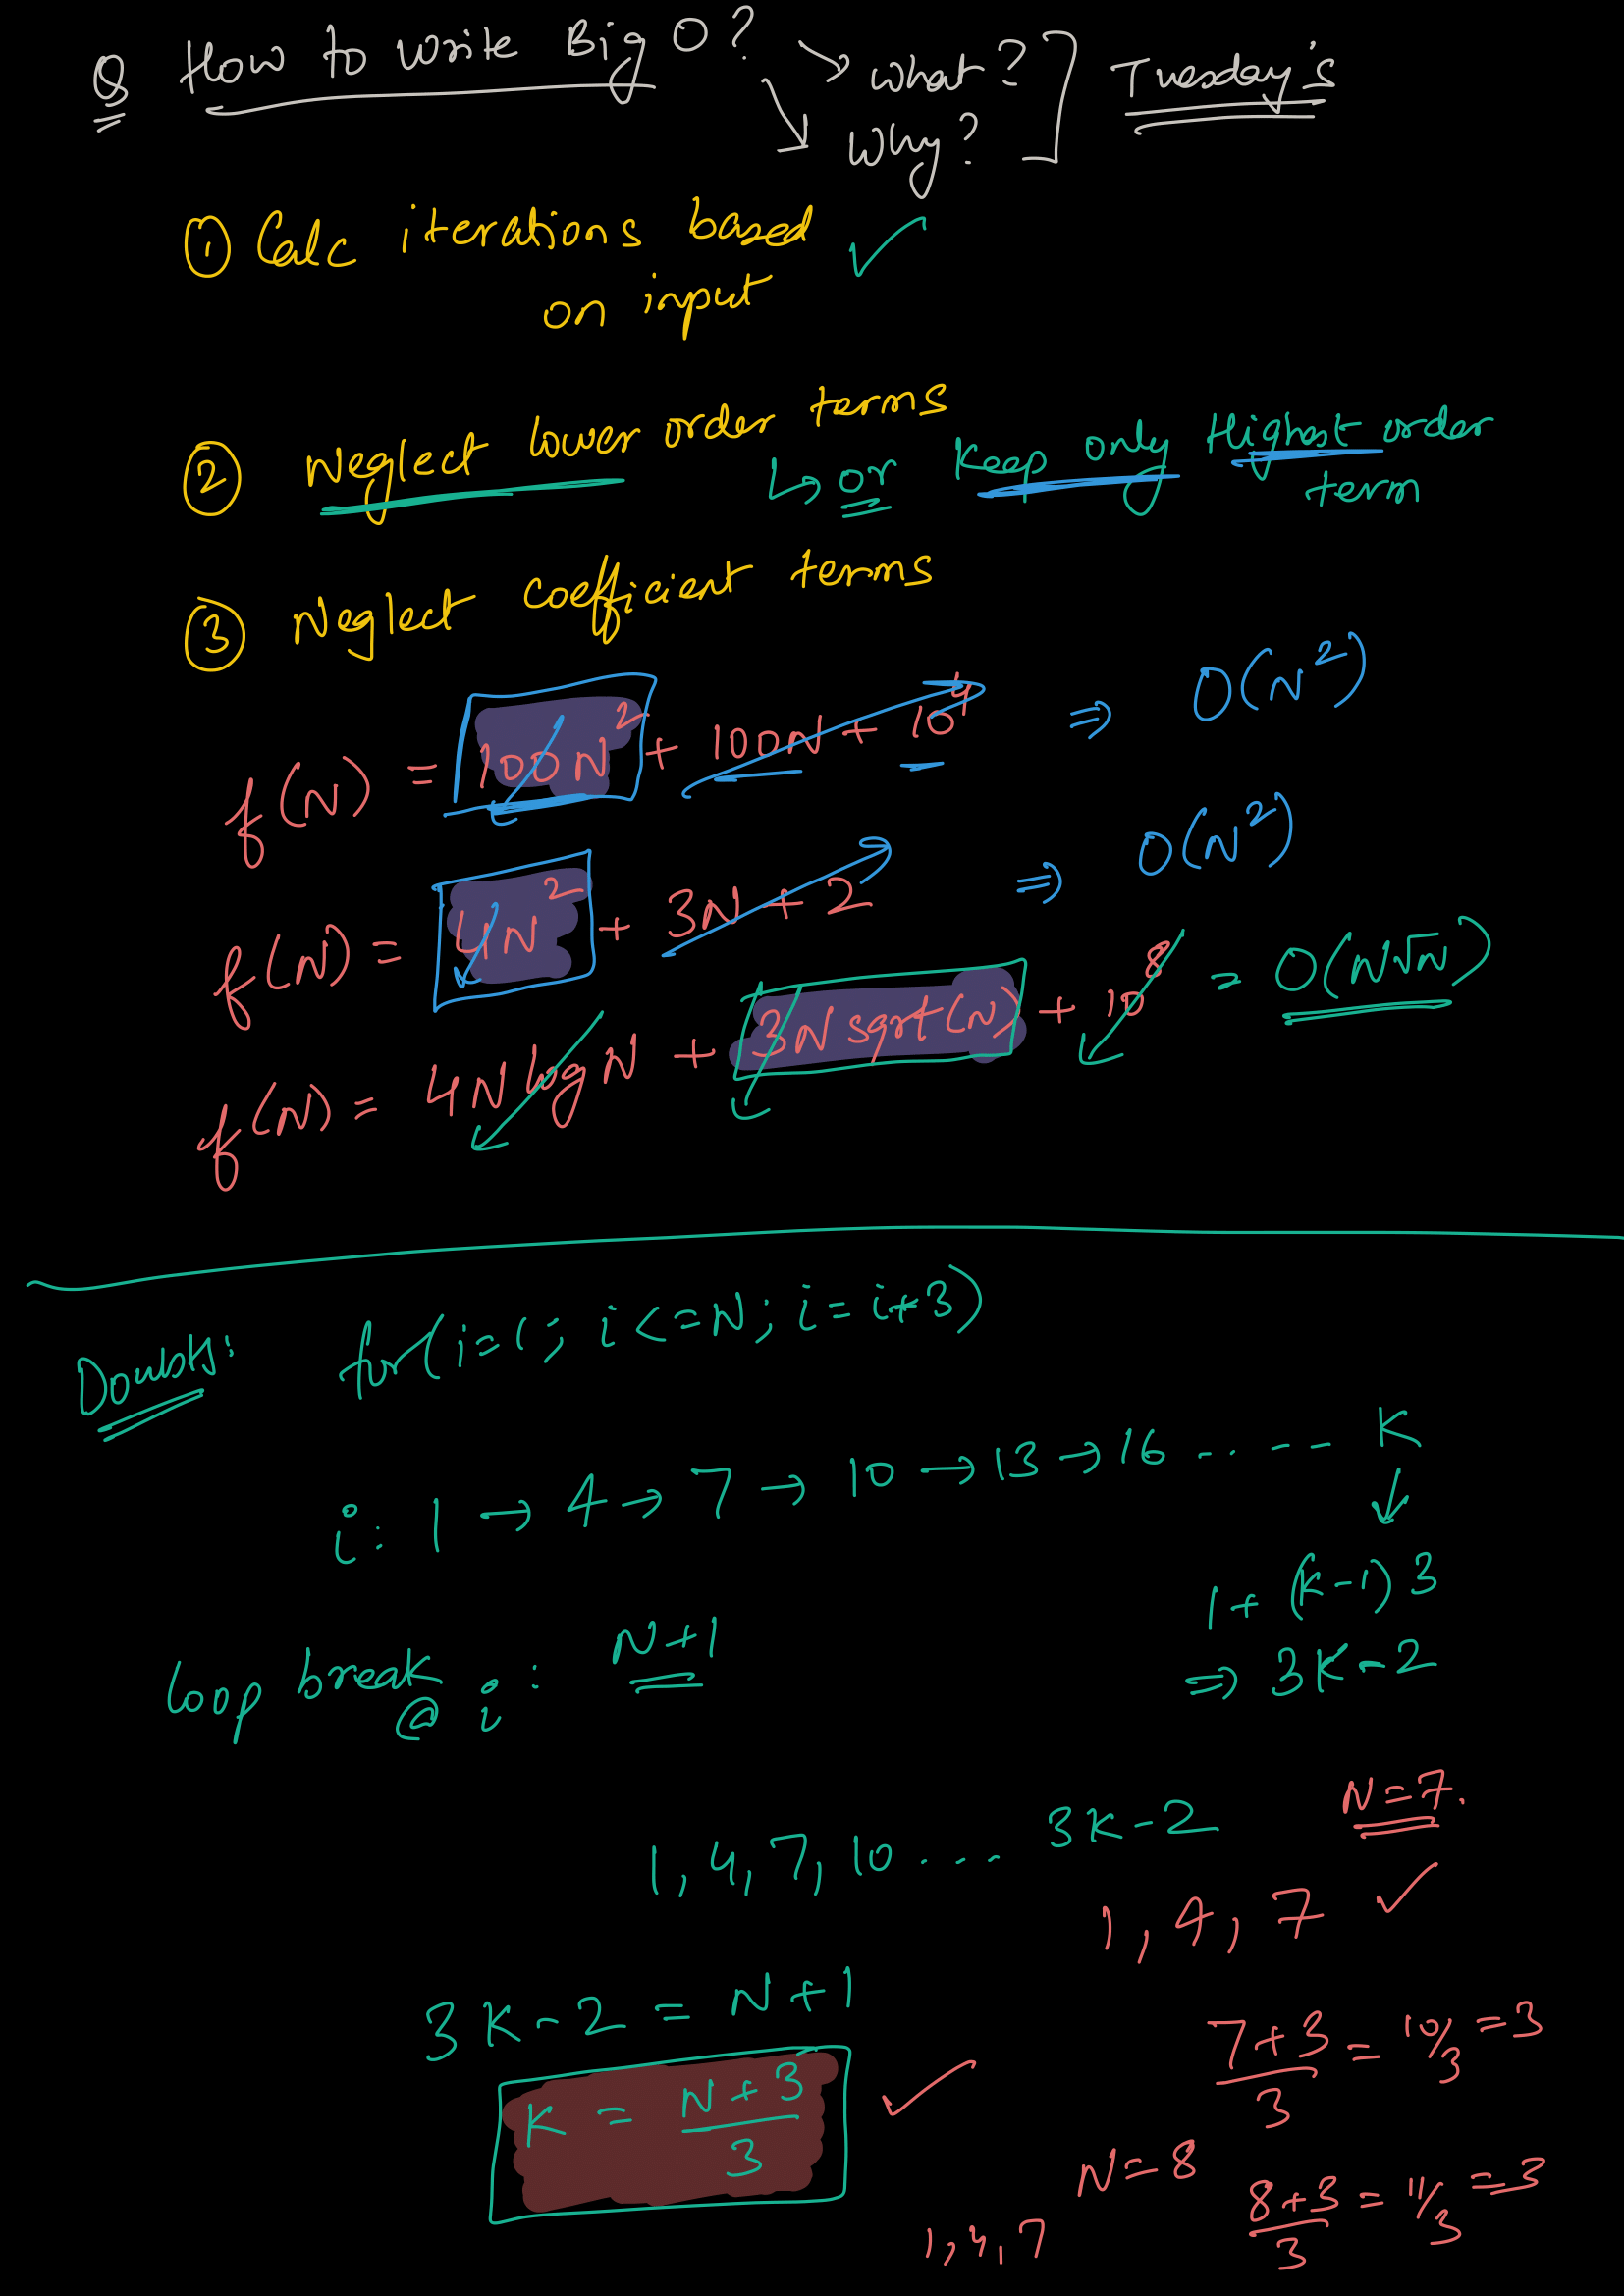 Q How to write Big O? → what? ] Tuesday's
↘ why?
① Calc iterations based ✓
on input
② Neglect lower order terms
↳ or Keep only Highest order
term
③ Neglect coefficient terms
f(N) = 100N² + 100N + 10⁴ ⇒ O(N²)
f(N) = 4N² + 3N + 2 ⇒ O(N²)
f(N) = 4N log N + 3N sqrt(N) + 10⁸ = O(N√N)
Doubts: for(i=1; i<=N; i=i+3)
i: 1 → 4 → 7 → 10 → 13 → 16 ........ K
↓
1 + (K-1) 3
⇒ 3K-2
loop break @ i : N+1
N=7.
1, 4, 7, 10 .... 3K-2
1, 4, 7 ✓
3K-2 = N+1
K = (N+3)/3 ✓
(7+3)/3 = 10/3 = 3
N=8
(8+3)/3 = 11/3 = 3
1, 4, 7